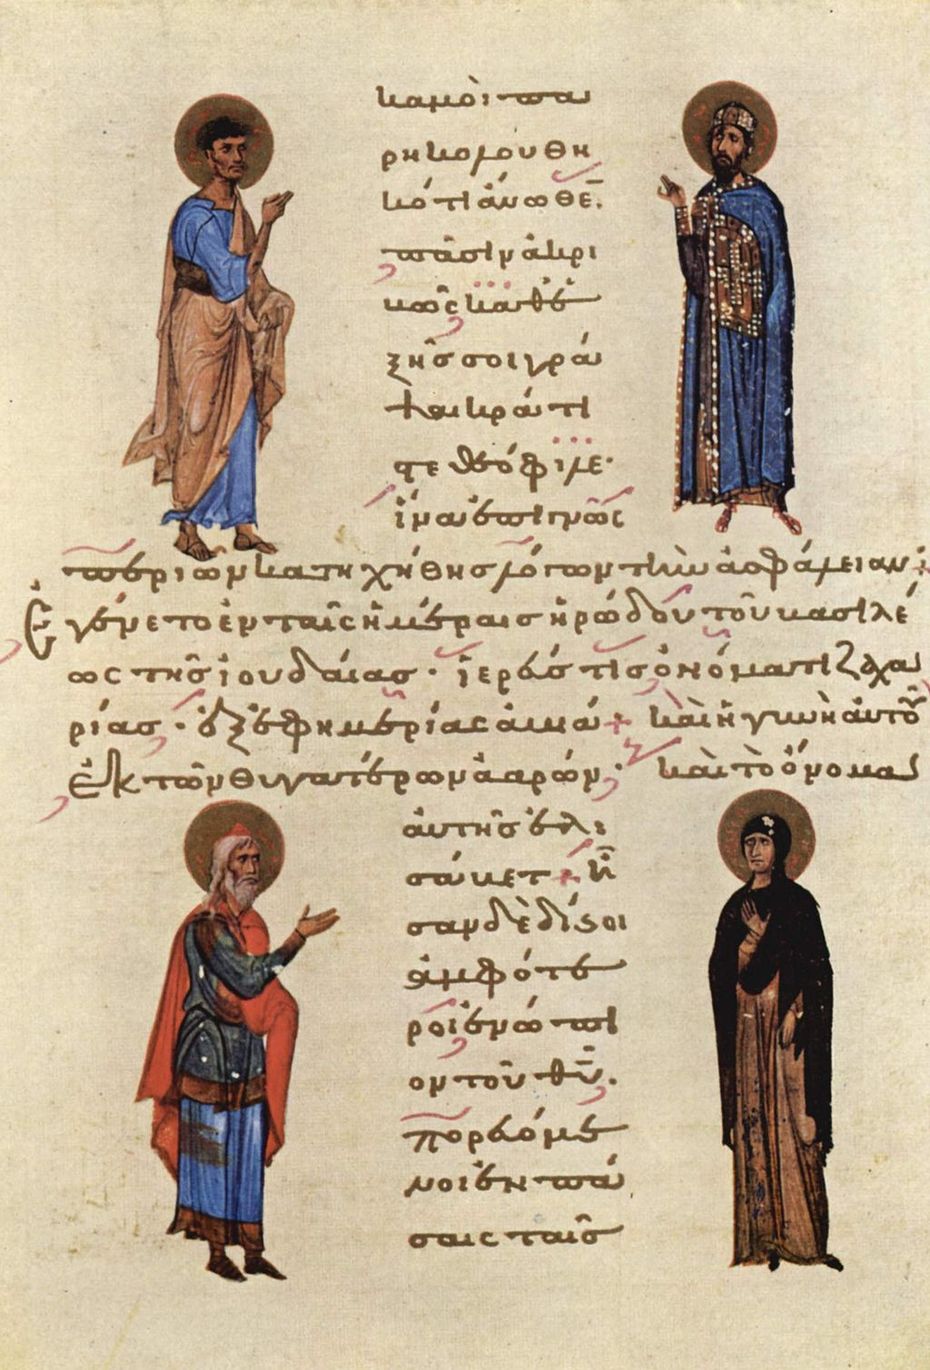 καμοὶ πα
ρηκολουθη
κότι ἄνωθε̅.
πᾶσιν ἀκρι
βῶς καθε
ξῆς σοι γρά
ψαι κράτι
στε θεόφιλε·
ἵνα ἐπιγνῶς
περι ὧν κατηχήθης λόγων τὴν ἀσφάλειαν:
Ἐγένετο ἐν ταῖς ἡμέραις ἡρώδου τοῦ βασιλέ
ως τῆς ἰουδαίας· ἱερεύς τις ὀνόματι ζαχα
ρίας· ἐξ ἐφημερίας ἀβιά+ καὶ ἡ γυνὴ αὐτοῦ
ἐκ τῶν θυγατέρων ἀαρών· καὶ τὸ ὄνομα
αὐτῆς ἐλι
σάβετ + ἦ
σαν δὲ δίκαιοι
ἀμφότε
ροι ἐνώπι
ον τοῦ θῦ.
πορευόμε
νοι ἐν πά
σαις ταῖς